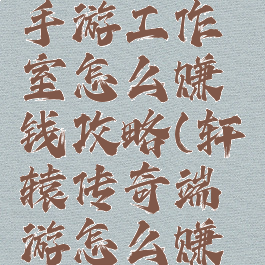 手游工作
室怎么赚
钱攻略(轩
辕传奇端
游怎么赚